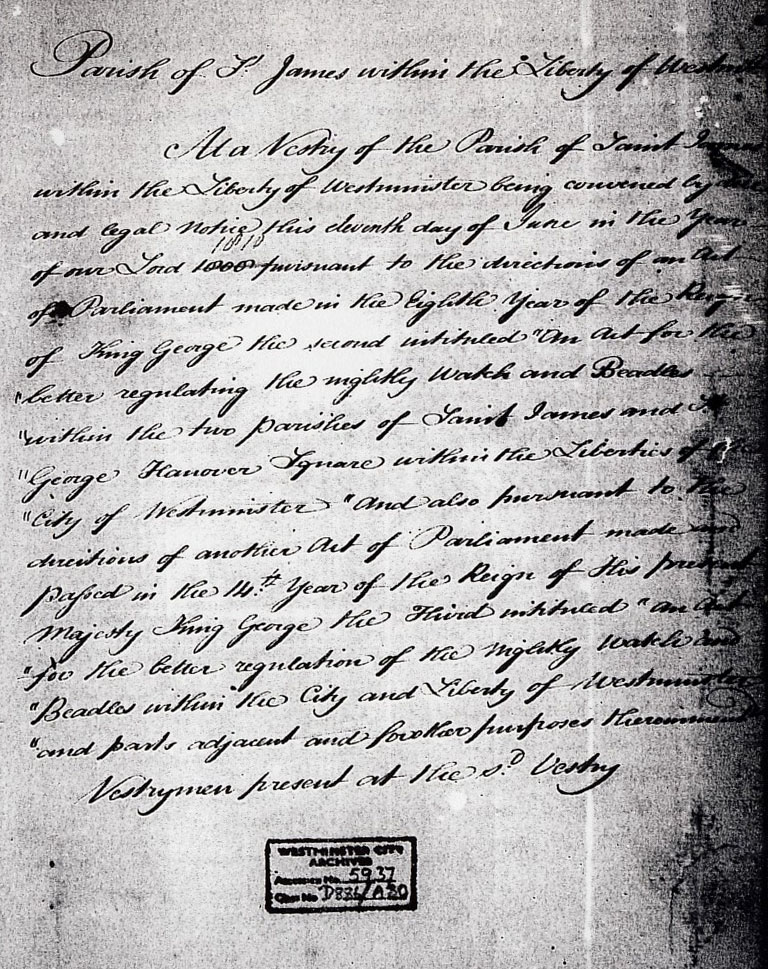 Parish of St. James within the Liberty of
At a Vestry of the Parish of Saint James
within the Liberty of Westminster being convened by
and legal notice this eleventh day of June in the Year
1818
of our Lord pursuant to the directions of an Act
of Parliament made in the Eighth Year of the Reign
of King George the second intituled "An Act for the
"better regulating the nightly Watch and Beadles
"within the two parishes of Saint James and St.
"George Hanover Square within the Liberties of the
"City of Westminster "And also pursuant to the
directions of another Act of Parliament made and
passed in the 14th. Year of the Reign of His present
Majesty King George the Third intituled "an Act
"for the better regulation of the Nightly Watch and
"Beadles within the City and Liberty of Westminster
"and parts adjacent and for other purposes
Vestrymen present at the sd. Vestry
WESTMINSTER CITY
ARCHIVES
Accession No. 5937
Class No D886/A80